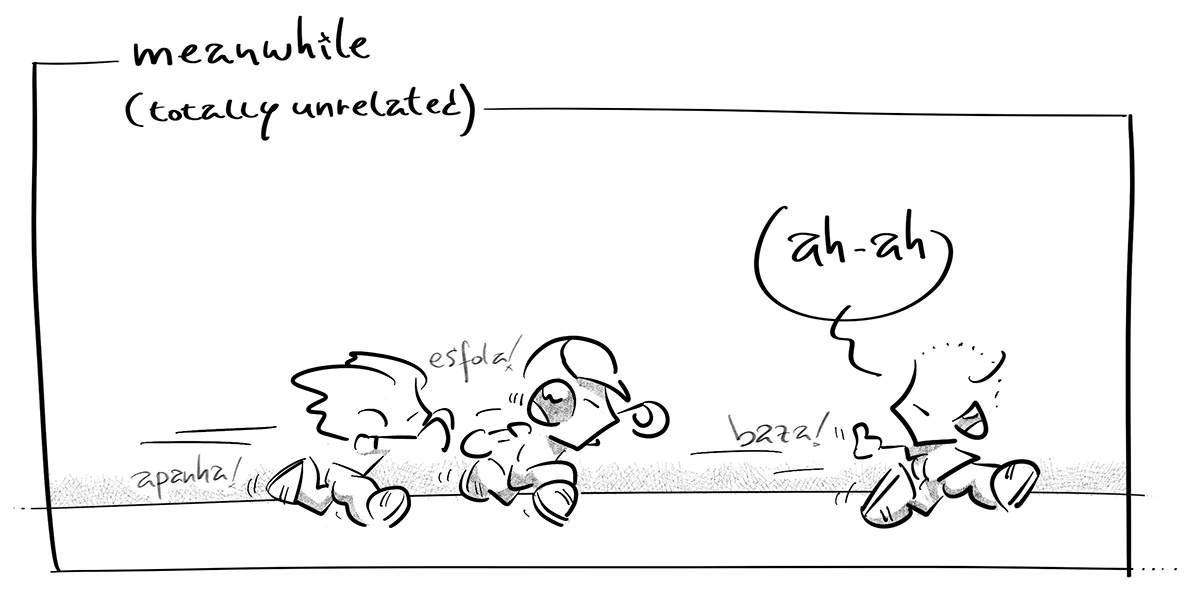 meanwhile
(totally unrelated)
ah-ah
esfola!
baza!
apanha!